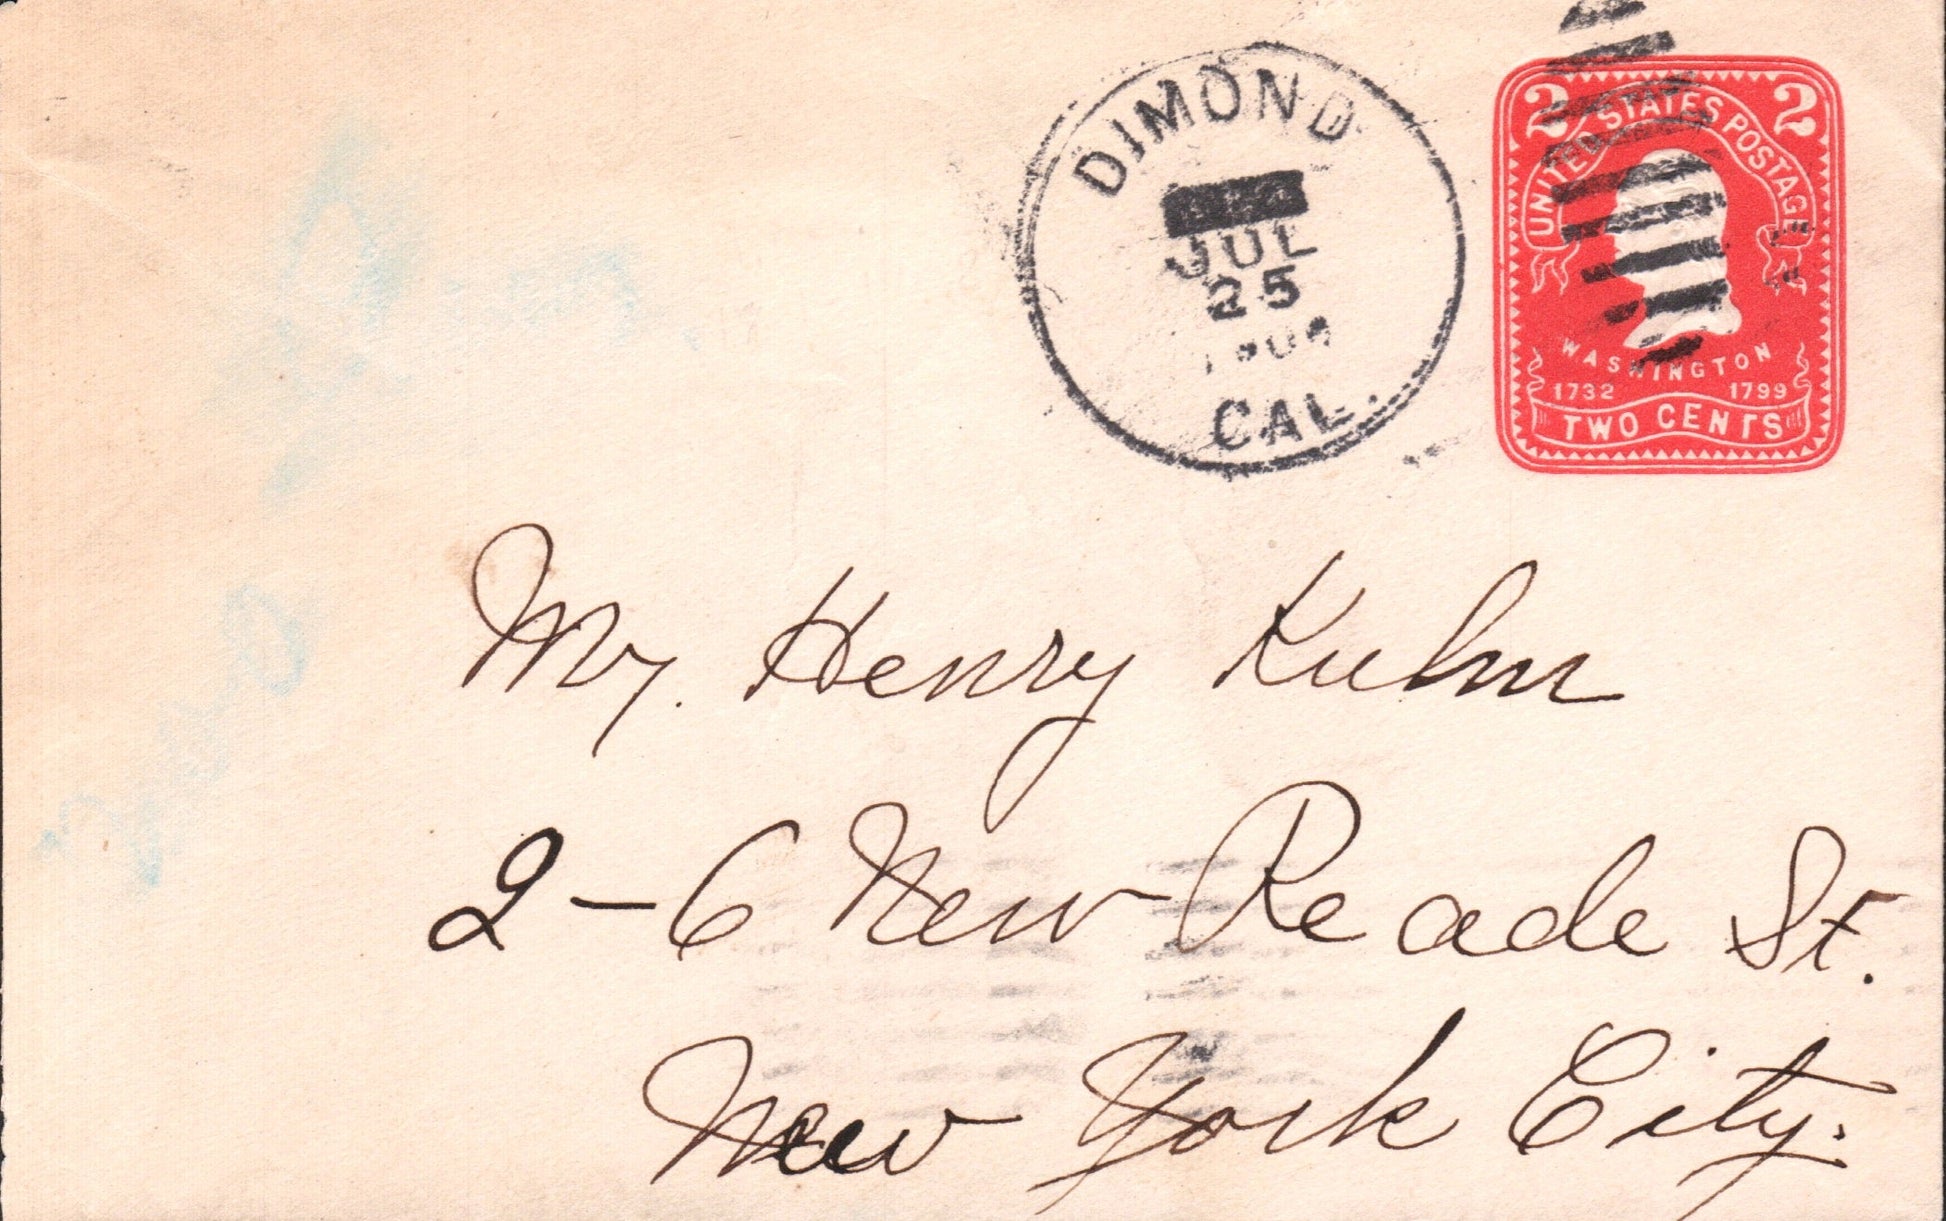 DIMOND
JUL
25
CAL.
2 2
UNITED STATES POSTAGE
WASHINGTON
1732 1799
TWO CENTS
Mr. Henry Kuhn
2-6 New Reade St.
New York City.